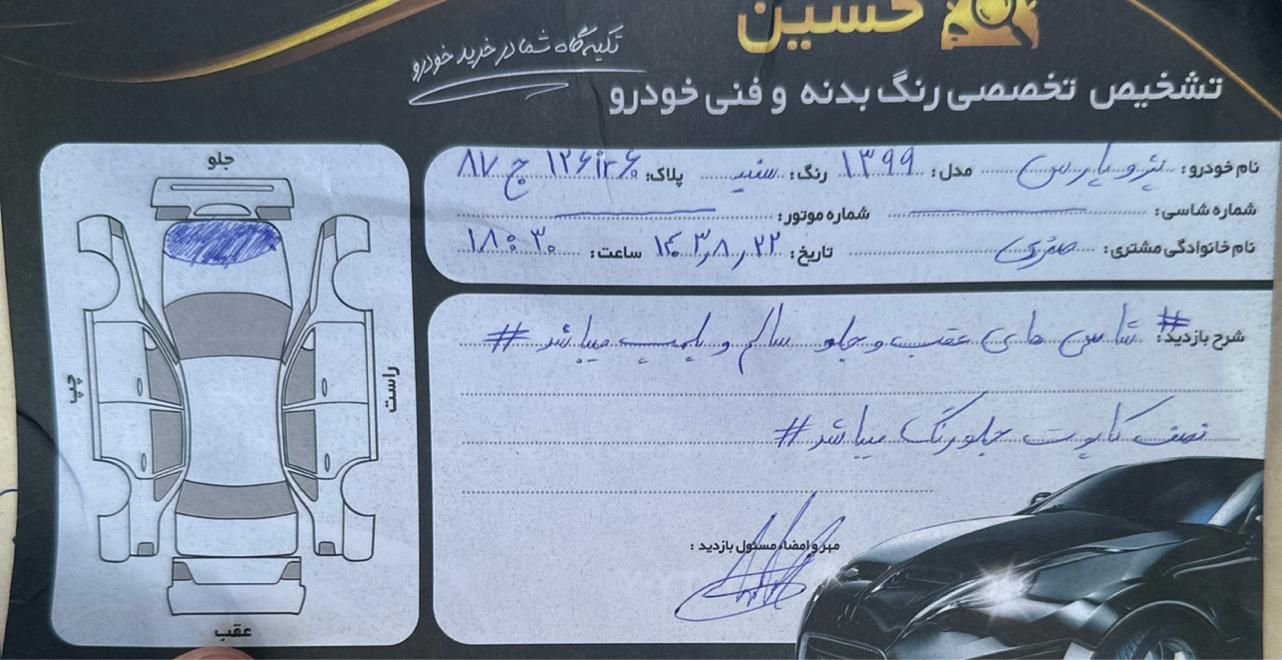 حسین
تکیه‌گاه شما در خرید خودرو
تشخیص تخصصی رنگ بدنه و فنی خودرو
جلو
چپ
راست
عقب
نام خودرو: پژو پارس مدل: ۱۳۹۹ رنگ: سفید پلاک: ۸۷ ج ۱۲۶ ir ۶
شماره شاسی: شماره موتور:
نام خانوادگی مشتری: تاریخ: ۱۴۰۳٫۸٫۲۲ ساعت: ۱۸:۳۰
شرح بازدید: # شاسی های عقب و جلو سالم و پلمپ میباشد #
نصف کاپوت جلو رنگ میباشد #
مهر و امضاء مسئول بازدید :